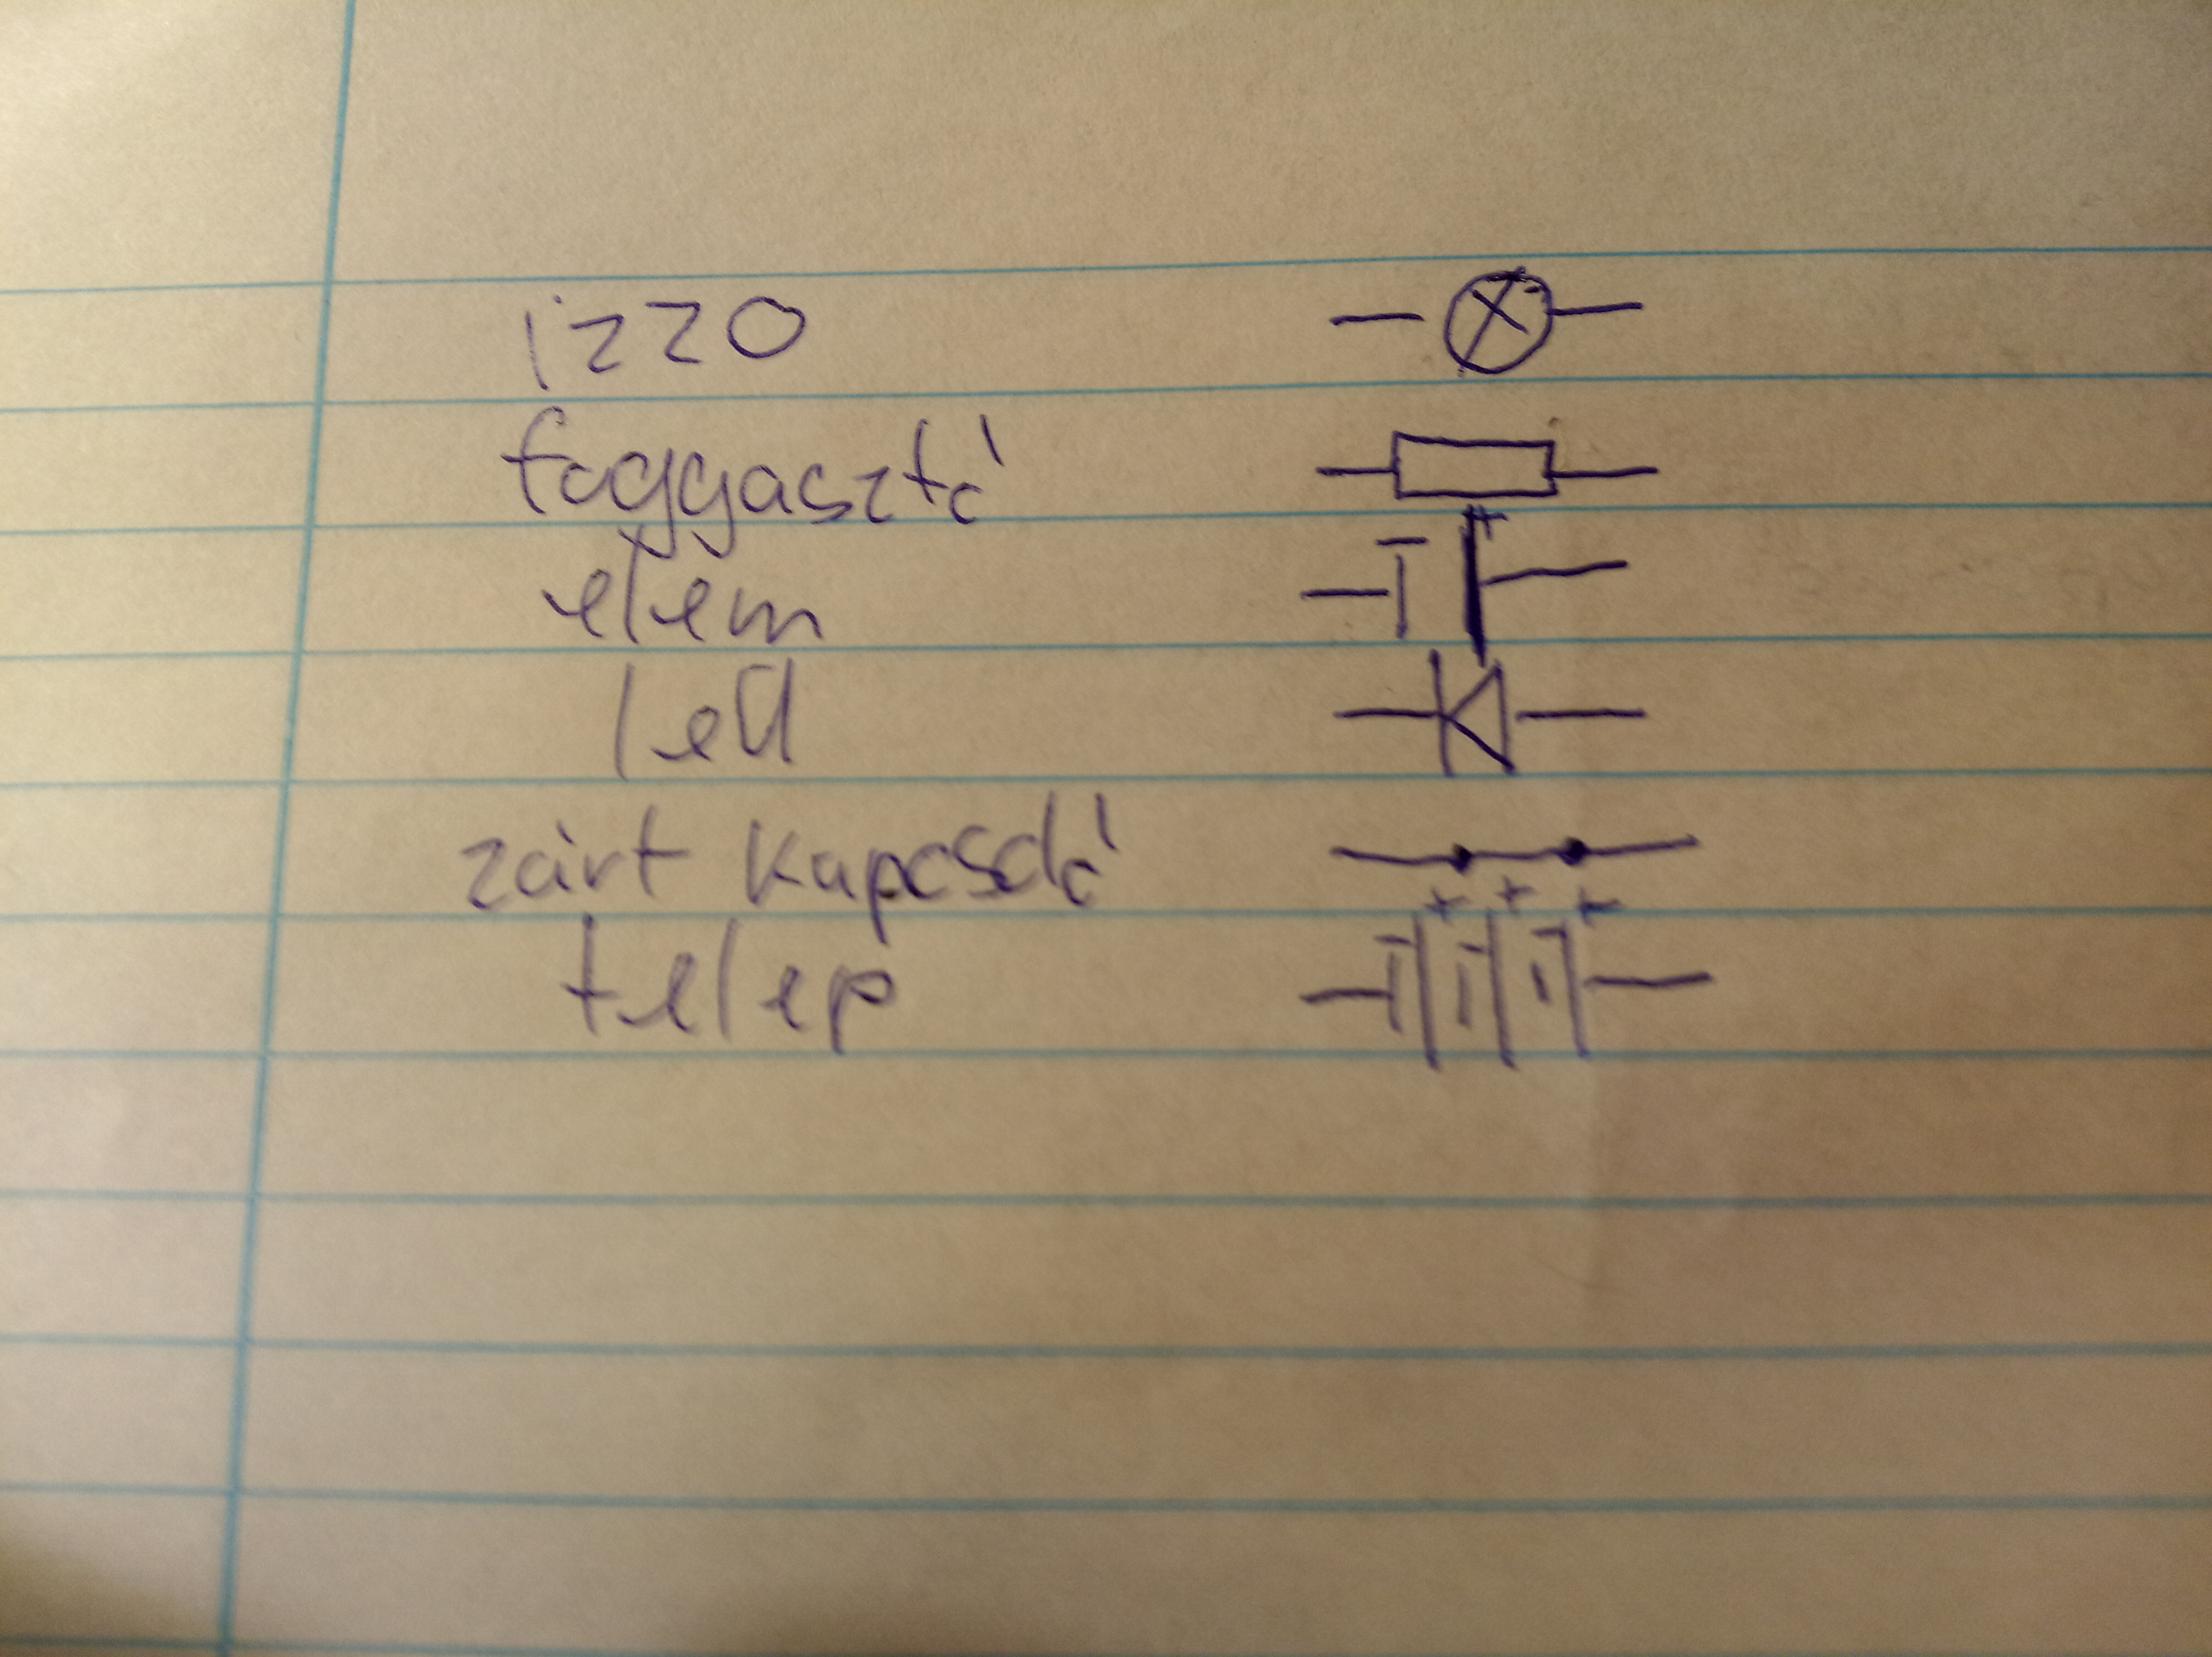 izzo
foggyasztó
elem
led
zárt kapcsoló
telep